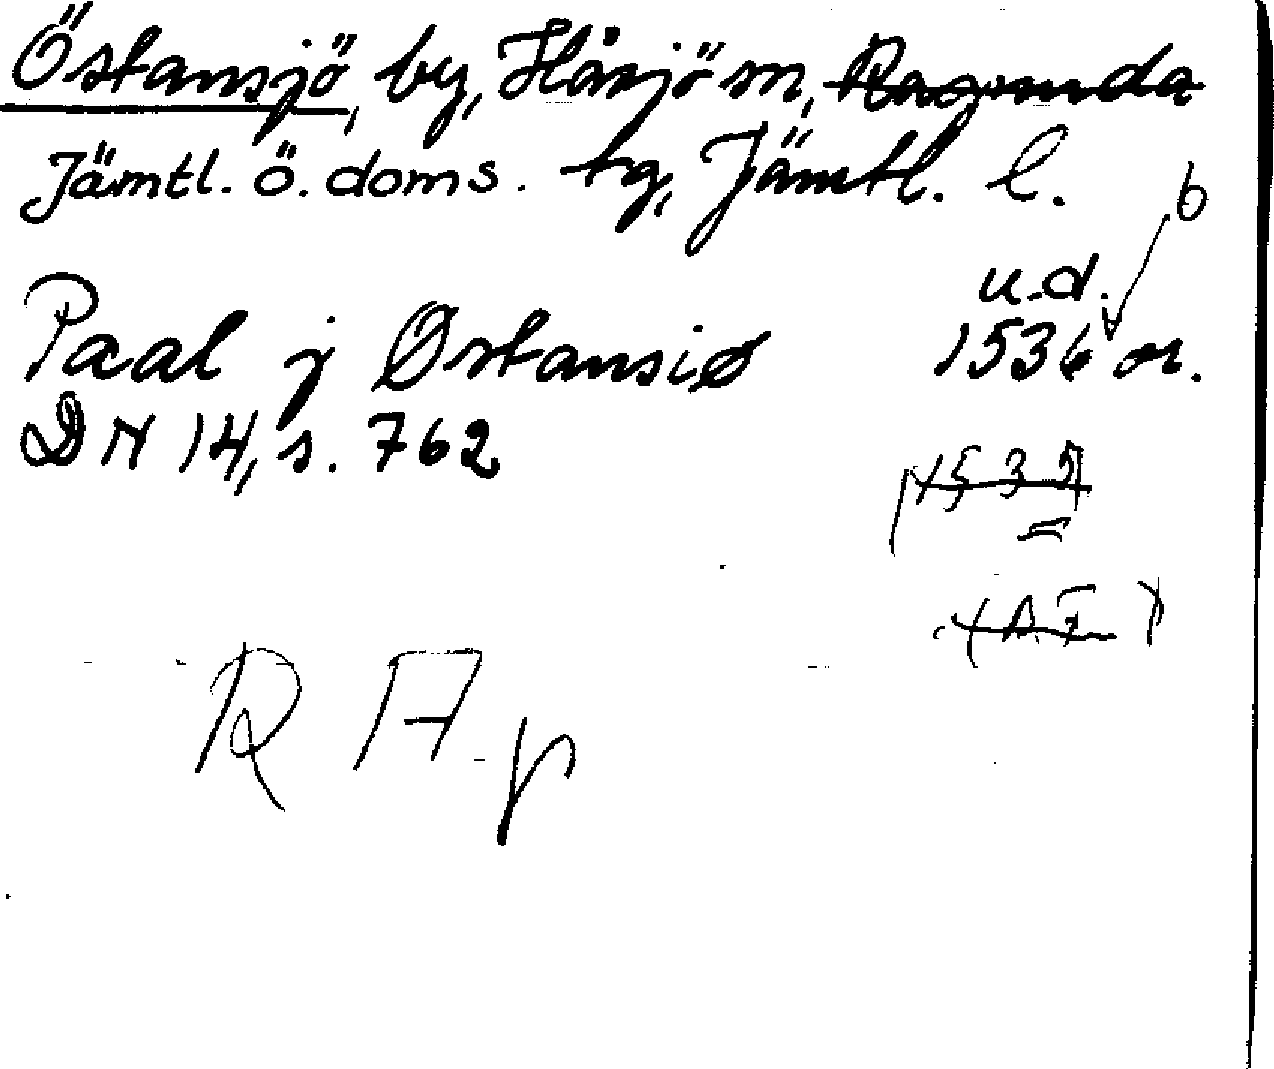 Östansjö, by, Håsjö sn, Ragunda
Jämtl. ö. doms. tg, Jämtl. l.
b
u.d.
Paal j Østansiø 1536 or.
DN 14, s. 762
1535
RA p